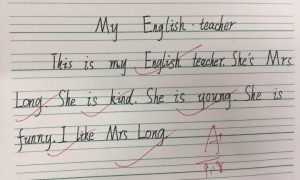 My English teacher
This is my English teacher. She's Mrs
Long. She is kind. She is young. She is
funny. I like Mrs Long.
A+
9.18